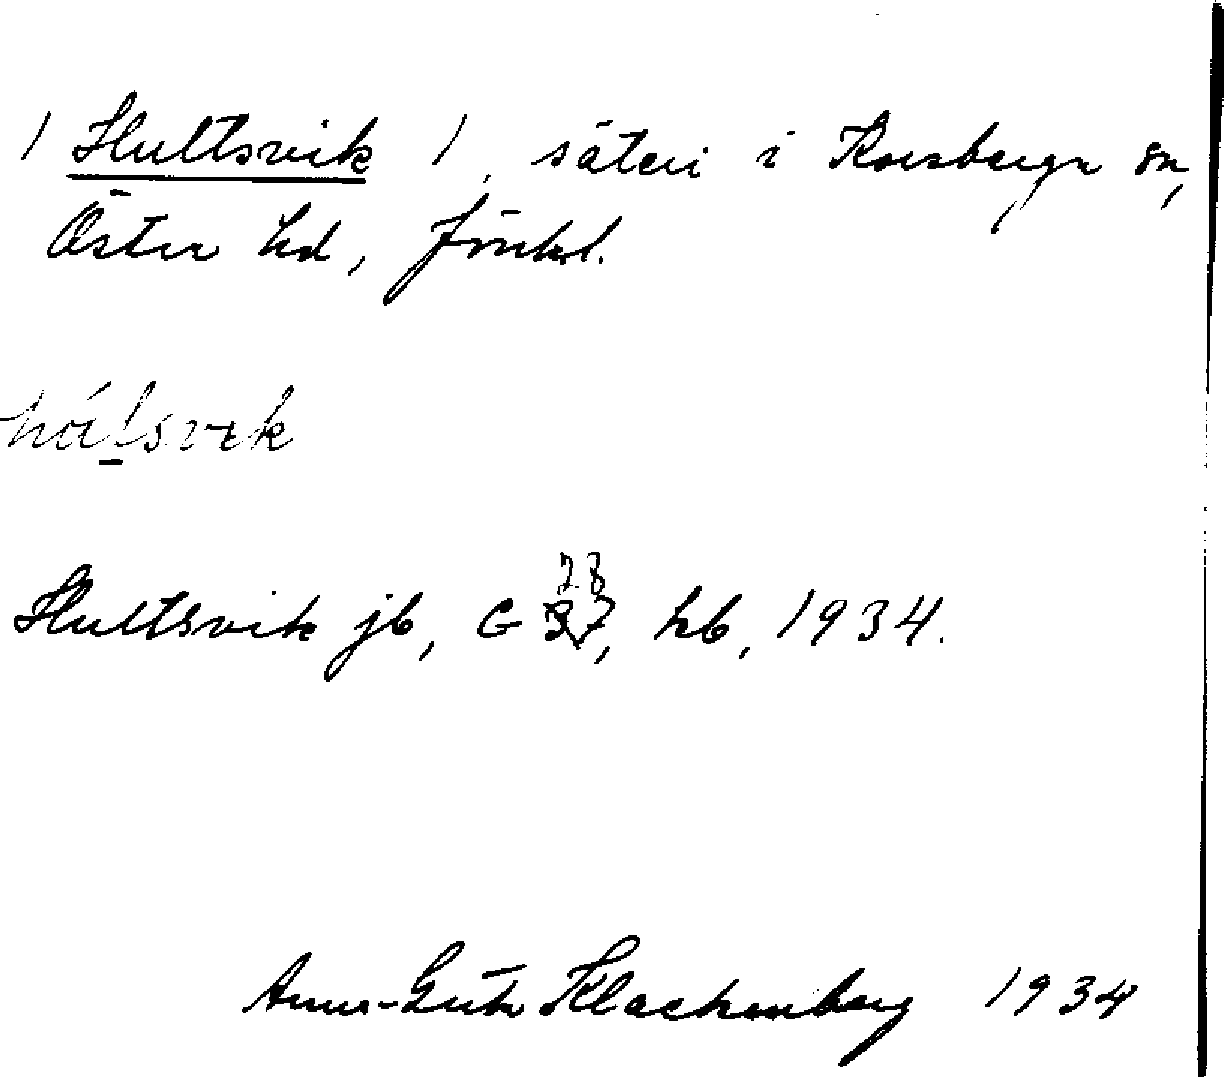 / Hultsvik /, säteri i Korsberga sn,
Öster hd, Jönkl.
Hultsvik jb, G 28 37, hb, 1934.
Anna-Greta Klackenberg 1934